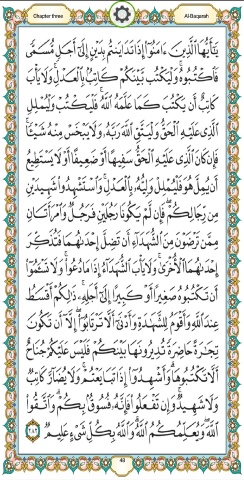 Chapter three
Al-Baqarah
يَٰٓأَيُّهَا ٱلَّذِينَ ءَامَنُوٓا۟ إِذَا تَدَايَنتُم بِدَيْنٍ إِلَىٰٓ أَجَلٍ مُّسَمًّى
فَٱكْتُبُوهُ ۚ وَلْيَكْتُب بَّيْنَكُمْ كَاتِبٌۢ بِٱلْعَدْلِ ۚ وَلَا يَأْبَ
كَاتِبٌ أَن يَكْتُبَ كَمَا عَلَّمَهُ ٱللَّهُ ۚ فَلْيَكْتُبْ وَلْيُمْلِلِ
ٱلَّذِى عَلَيْهِ ٱلْحَقُّ وَلْيَتَّقِ ٱللَّهَ رَبَّهُۥ وَلَا يَبْخَسْ مِنْهُ شَيْـًٔا ۚ
فَإِن كَانَ ٱلَّذِى عَلَيْهِ ٱلْحَقُّ سَفِيهًا أَوْ ضَعِيفًا أَوْ لَا يَسْتَطِيعُ
أَن يُمِلَّ هُوَ فَلْيُمْلِلْ وَلِيُّهُۥ بِٱلْعَدْلِ ۚ وَٱسْتَشْهِدُوا۟ شَهِيدَيْنِ
مِن رِّجَالِكُمْ ۖ فَإِن لَّمْ يَكُونَا رَجُلَيْنِ فَرَجُلٌ وَٱمْرَأَتَانِ
مِمَّن تَرْضَوْنَ مِنَ ٱلشُّهَدَآءِ أَن تَضِلَّ إِحْدَىٰهُمَا فَتُذَكِّرَ
إِحْدَىٰهُمَا ٱلْأُخْرَىٰ ۚ وَلَا يَأْبَ ٱلشُّهَدَآءُ إِذَا مَا دُعُوا۟ ۚ وَلَا تَسْـَٔمُوٓا۟
أَن تَكْتُبُوهُ صَغِيرًا أَوْ كَبِيرًا إِلَىٰٓ أَجَلِهِۦ ۚ ذَٰلِكُمْ أَقْسَطُ
عِندَ ٱللَّهِ وَأَقْوَمُ لِلشَّهَٰدَةِ وَأَدْنَىٰٓ أَلَّا تَرْتَابُوٓا۟ ۖ إِلَّآ أَن تَكُونَ
تِجَٰرَةً حَاضِرَةً تُدِيرُونَهَا بَيْنَكُمْ فَلَيْسَ عَلَيْكُمْ جُنَاحٌ
أَلَّا تَكْتُبُوهَا ۗ وَأَشْهِدُوٓا۟ إِذَا تَبَايَعْتُمْ ۚ وَلَا يُضَآرَّ كَاتِبٌ
وَلَا شَهِيدٌ ۚ وَإِن تَفْعَلُوا۟ فَإِنَّهُۥ فُسُوقٌۢ بِكُمْ ۗ وَٱتَّقُوا۟
ٱللَّهَ ۖ وَيُعَلِّمُكُمُ ٱللَّهُ ۗ وَٱللَّهُ بِكُلِّ شَىْءٍ عَلِيمٌ ٢٨٢
48